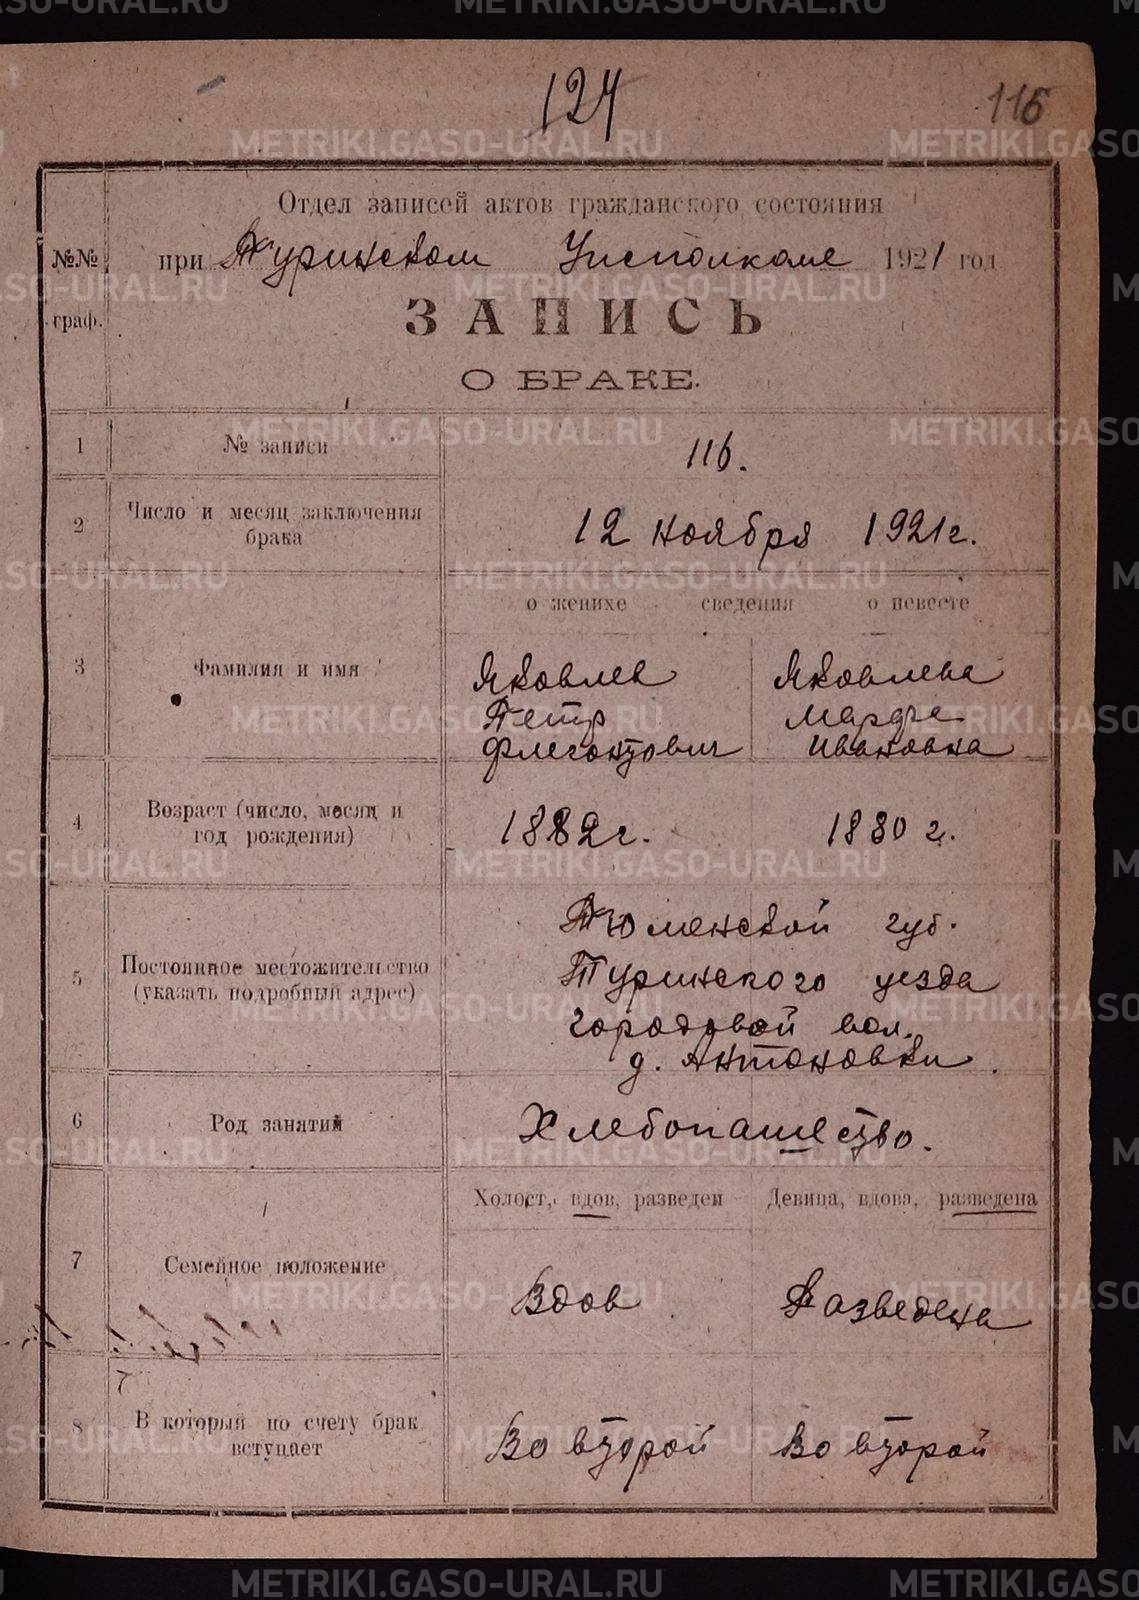 124
116
Отдел записей актов гражданского состояния
№№ граф.
при Туринском Уисполкоме 1921 год
ЗАПИСЬ
О БРАКЕ.
1 № записи 116.
2 Число и месяц заключения брака 12 ноября 1921 г.
о женихе сведения о невесте
3 Фамилия и имя
Яковлев Яковлева
Петр Марфа
Флегонтович Ивановна
4 Возраст (число, месяц и год рождения) 1882 г. 1880 г.
5 Постоянное местожительство (указать подробный адрес)
Тюменской губ.
Туринского уезда
городовой вол.
д. Антоновки.
6 Род занятий Хлебопашество.
Холост, вдов, разведен Девица, вдова, разведена
7 Семейное положение Вдов Разведена
8 В который по счету брак вступает Во второй Во второй
METRIKI.GASO-URAL.RU